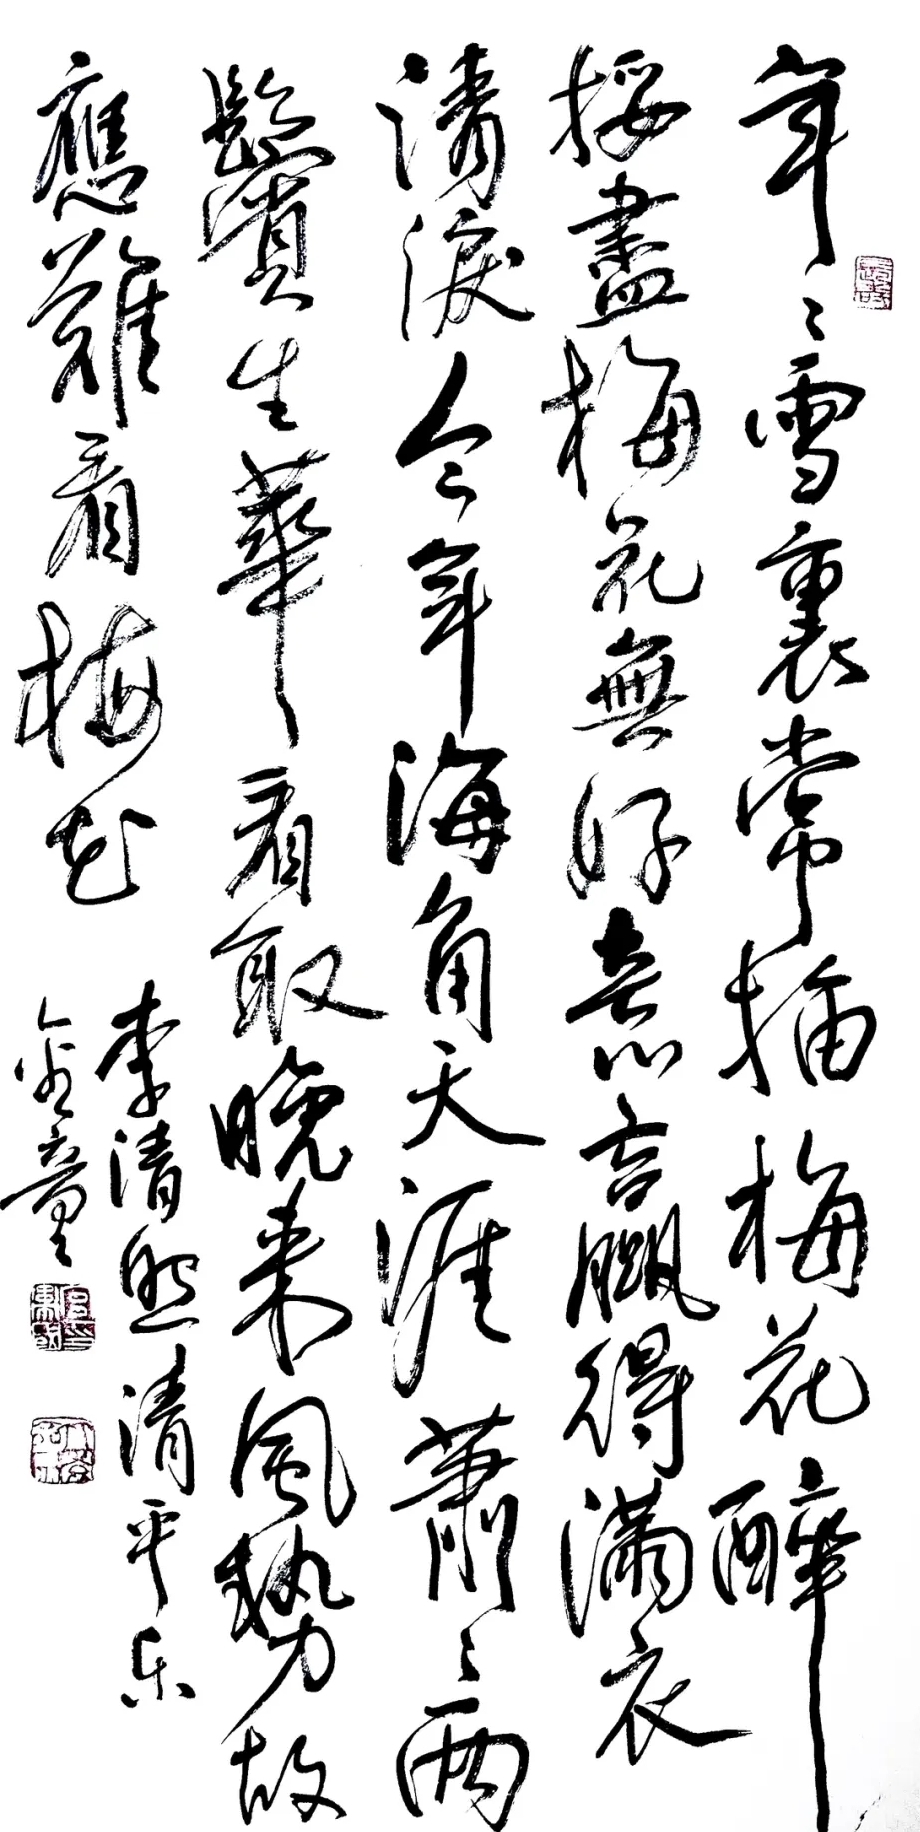 年々雪裏常插梅花醉
挼盡梅花無好意贏得滿衣
清淚今年海角天涯蕭々兩
鬢生華看取晚來風勢故
應難看梅花
李清照清平乐